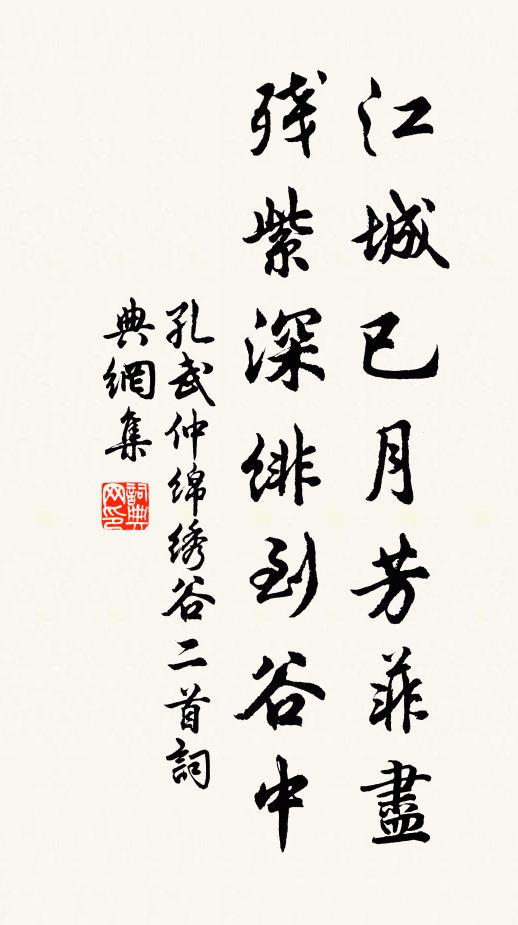 江城已月芳菲盡
残紫深緋到谷中
孔武仲綿綉谷二首詞
典網集
詞典网印